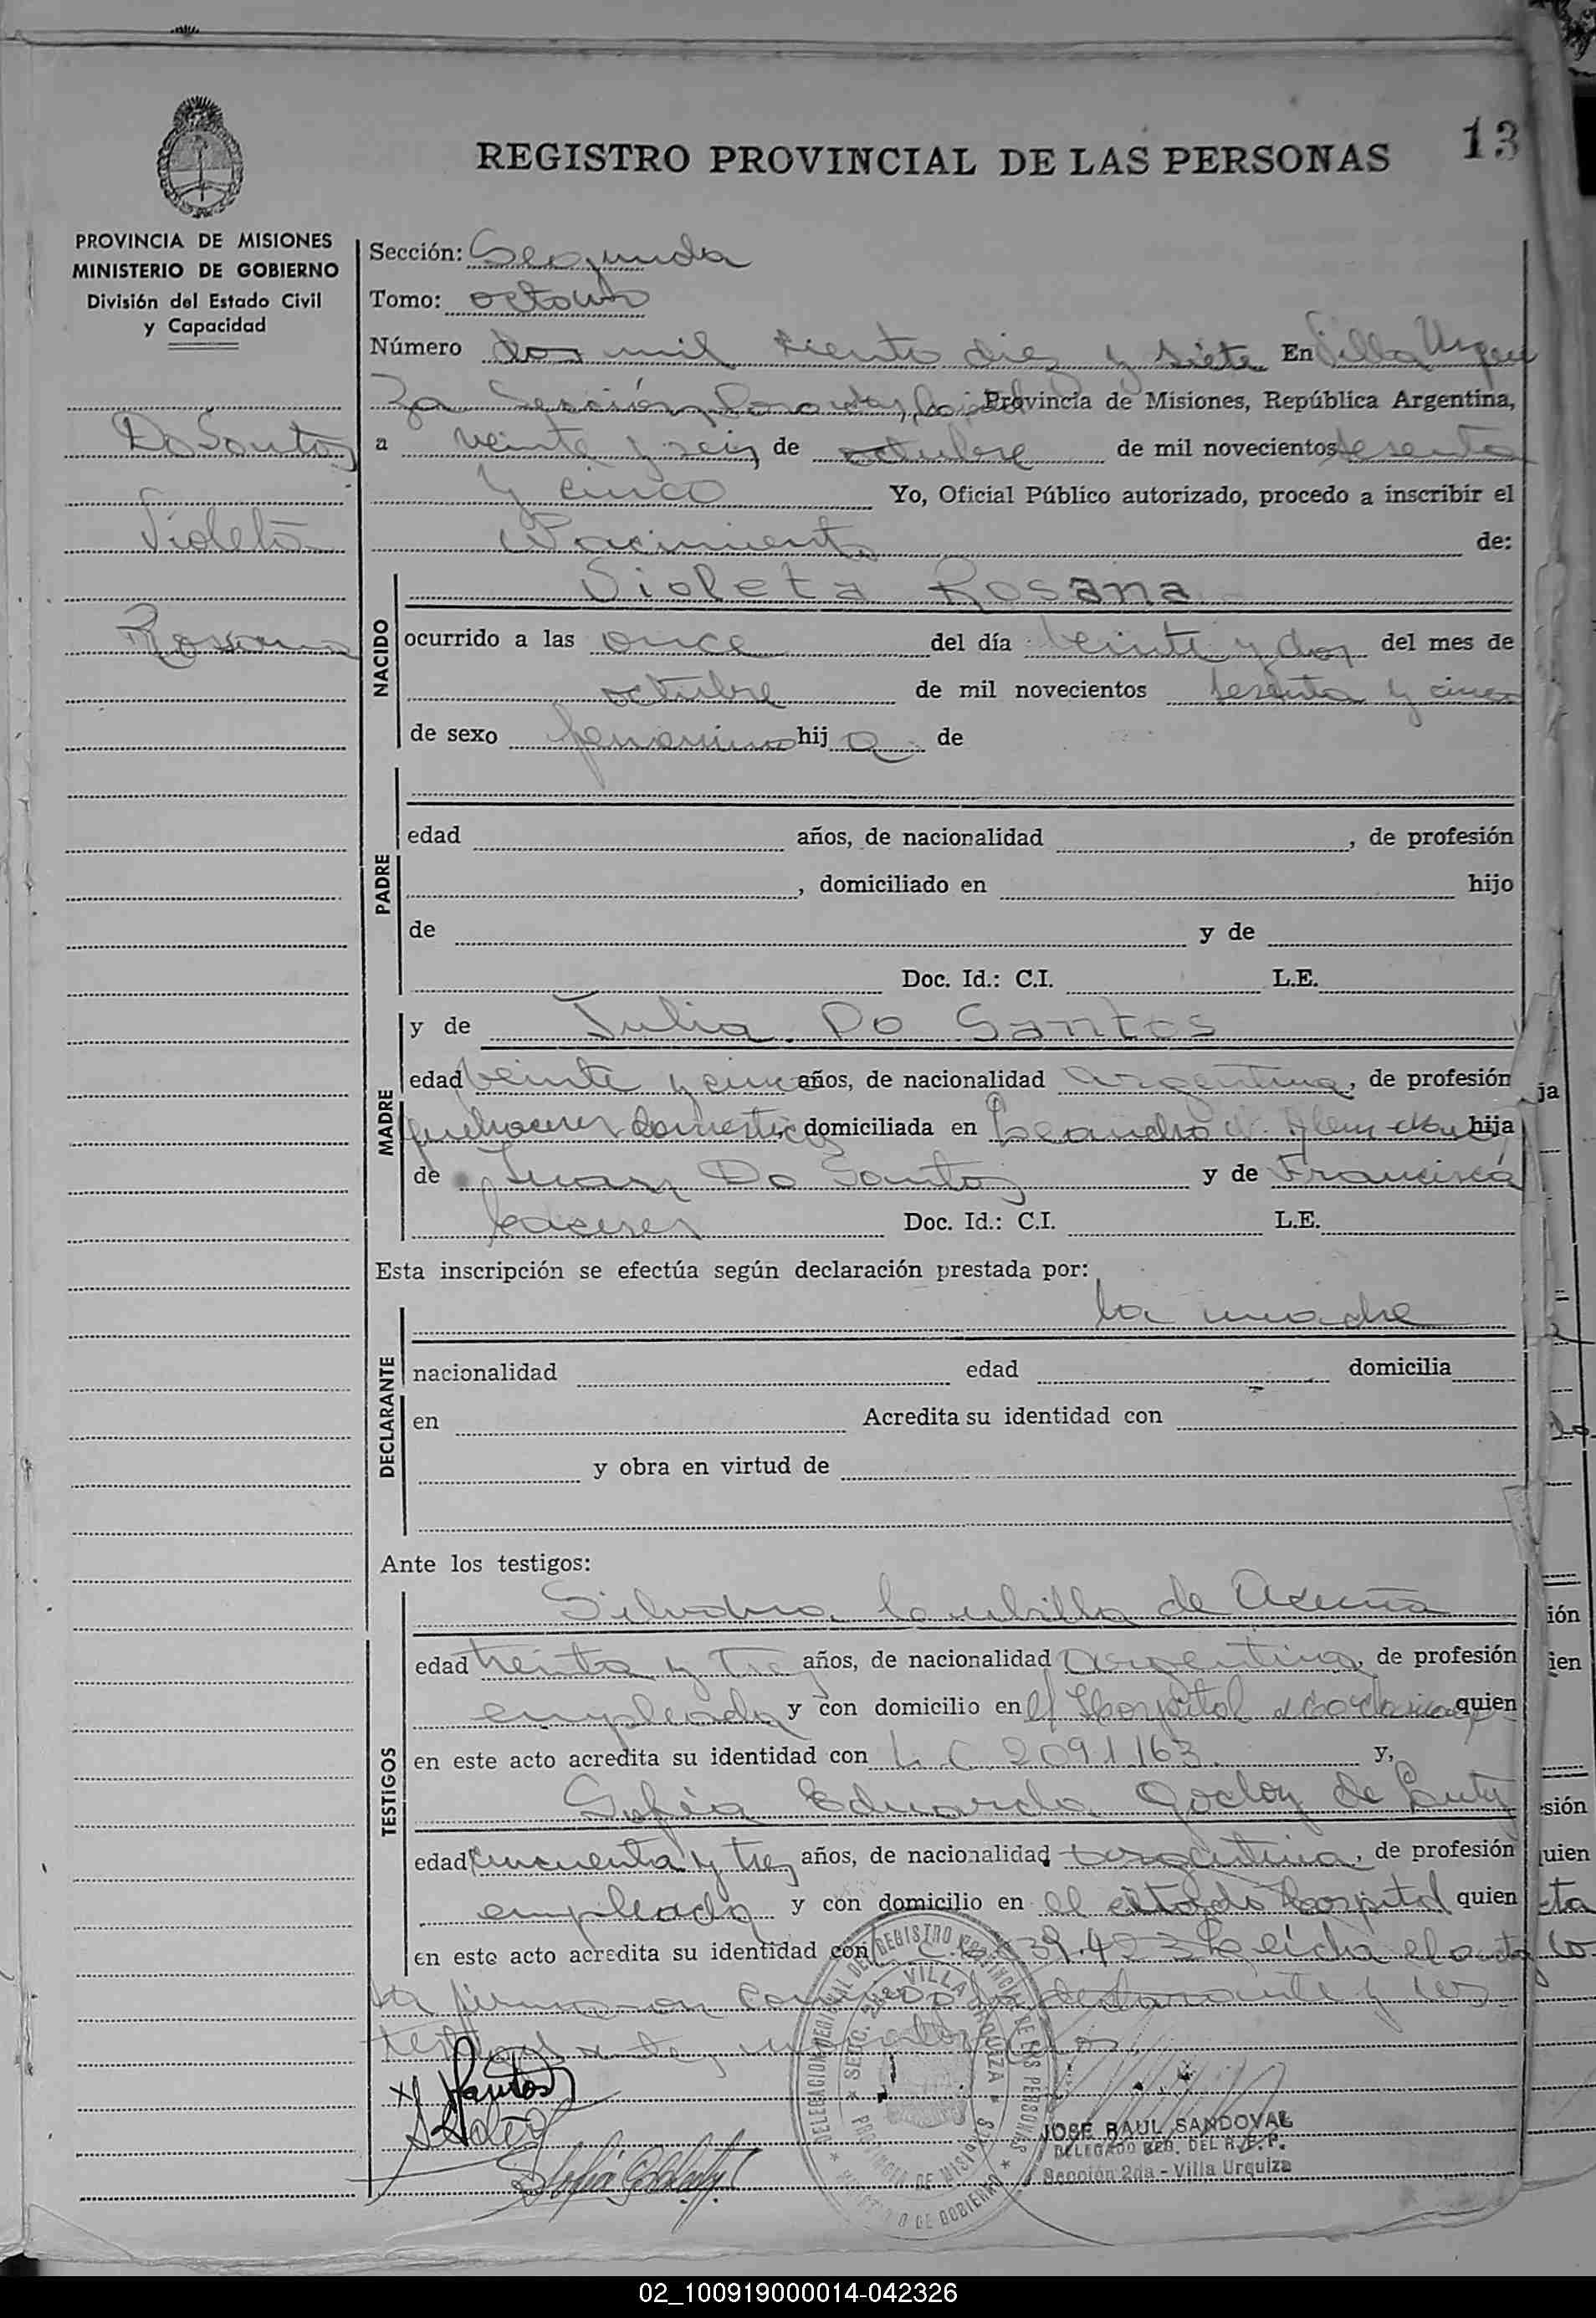 13
REGISTRO PROVINCIAL DE LAS PERSONAS
PROVINCIA DE MISIONES
MINISTERIO DE GOBIERNO
División del Estado Civil
y Capacidad
Do Santos
Violeta
Rosana
Sección: Segunda
Tomo: octavo
Número dos mil ciento diez y siete En Villa Urqui
za Sección Posadas, Provincia de Misiones, República Argentina,
a veinte y seis de octubre de mil novecientos sesenta
y cinco Yo, Oficial Público autorizado, procedo a inscribir el
Nacimiento de:
NACIDO
Violeta Rosana
ocurrido a las once del día veinte y dos del mes de
octubre de mil novecientos sesenta y cinco
de sexo femenino hija de
PADRE
edad años, de nacionalidad , de profesión
, domiciliado en hijo
de y de
Doc. Id.: C.I. L.E.
MADRE
y de Julia Do Santos
edad veinte y cinco años, de nacionalidad argentina, de profesión
quehaceres domesticos domiciliada en Leandro N. Alem hija
de Juan Do Santos y de Francisca
Caceres Doc. Id.: C.I. L.E.
Esta inscripción se efectúa según declaración prestada por:
DECLARANTE
la madre
nacionalidad edad domicilia
en Acredita su identidad con
y obra en virtud de
Ante los testigos:
TESTIGOS
de Acuña
edad treinta y tres años, de nacionalidad argentina, de profesión
empleada y con domicilio en el Hospital quien
en este acto acredita su identidad con L. C. 2091.163. y,
Sofia Eduarda Godoy de
edad cincuenta y tres años, de nacionalidad argentina, de profesión
empleada y con domicilio en el citado hospital quien
en este acto acredita su identidad con Leida el acta
la firmaron conmigo la declarante y los
testigos
DELEGACION REGIONAL DEL REGISTRO PROVINCIAL DE LAS PERSONAS
SECC. 2da VILLA URQUIZA
PROVINCIA DE MISIONES
MINISTERIO DE GOBIERNO
JOSE RAUL SANDOVAL
DELEGADO REG. DEL R.P.P.
Sección 2da - Villa Urquiza
02_100919000014-042326